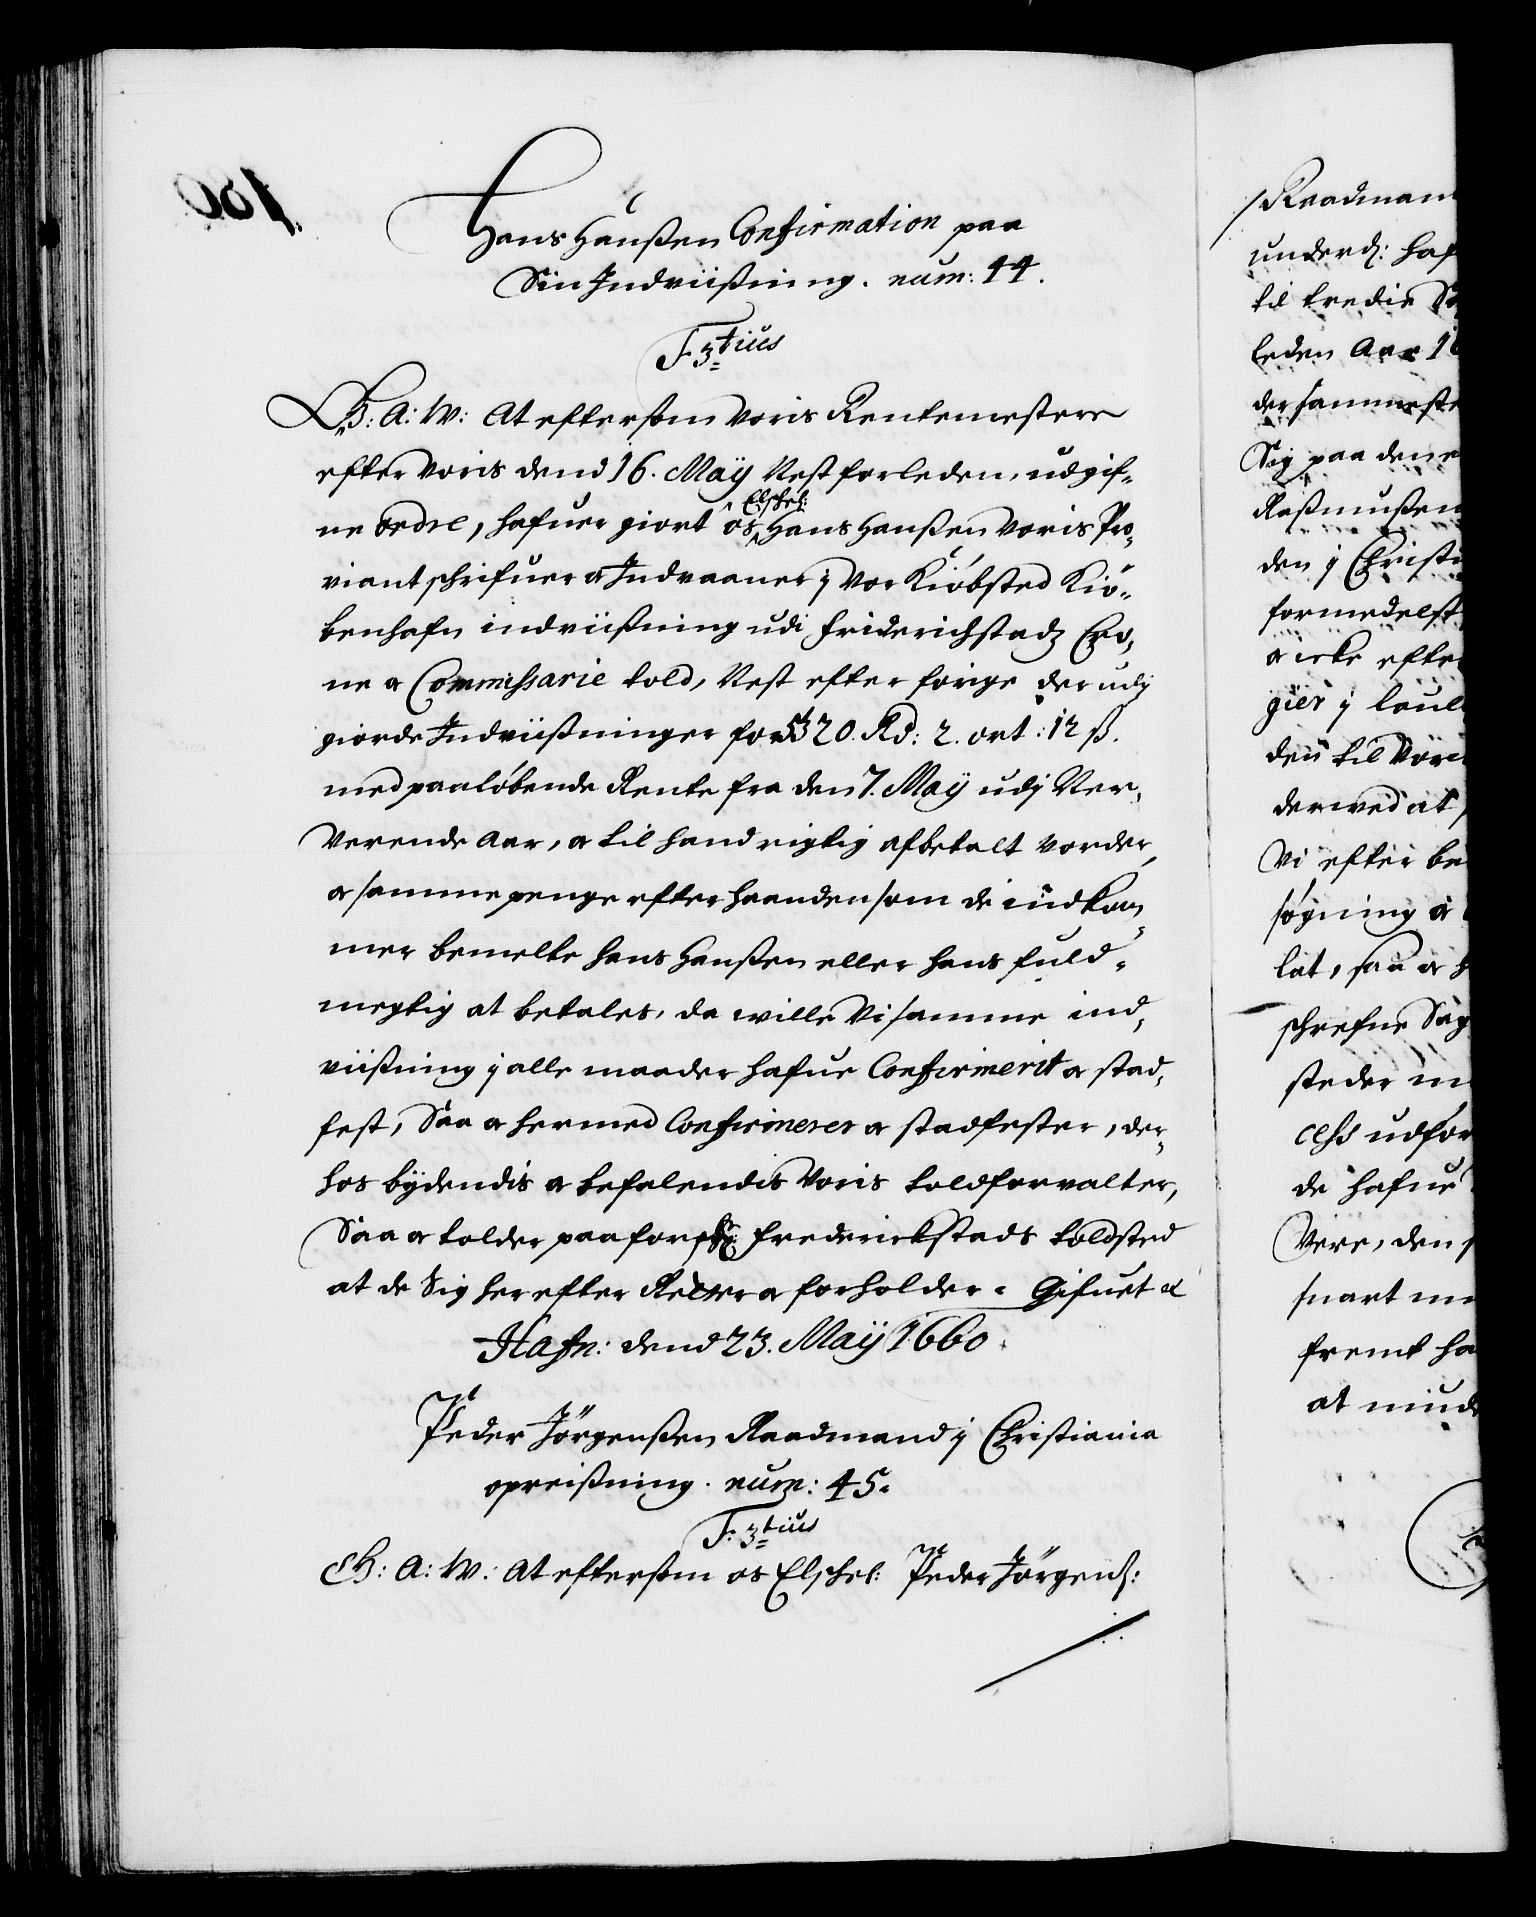 Hans Hanßen Confirmation paa
Sin Indviißning. num: 44.
F 3tius
G: A: W: At eftersom Voris Rentemestere
efter Voris dend 16. Maÿ Nest forleden, udgif-
ne ordre, hafuer giort os Elskel: Hans Hanßen Voris Pro-
viantschrifuer oc Indvaaner j Vor Kiöbsted Kiö-
benhafn indviißning udi Friderichstadz Cro-
ne oc Commissarie told, Nest efter forige der udj
giorde Indviißninger for 5320. Rd: 2. ort: 12 ß.
med paalöbende Rente fra den 7. Maÿ udj Ner-
Verende Aar, oc til hand rigtig afbetalt vorder,
oc samme penge efterhaanden som de indkom-
mer bemelte Hans Hanßen eller hans fuld-
megtig at betales, da wille Vi samme ind-
viißning j alle maader hafue Confirmerit oc stad-
fest, Saa oc hermed Confirmerer oc stadfester, der-
hos bÿdendis oc befalendis Voris toldforvalter,
Saa oc tolder paa forschr: Frederickstads toldsted
at de Sig herefter Retter oc forholder. Gifuet &
Hafn: dend 23. Maÿ 1660.
Peder Jörgenßen Raadmand j Christiania
opreißning. num: 45.
F. 3tius
G: A: W: At eftersom os Elskel: Peder Jörgenß:
180
Raadmand
underd: haf
til tredie
leden Aar 16
dersammeste
Sig paa denn
Raßmußen
den j Christi
formedelst
oc icke efte
gier j laul
den til Vori
derved at
Vi efter be
søgning oc
lat, saa oc
schrefne Sag
steder
cess udför
de hafue
Vere, den
snart
fremt ha
at miude